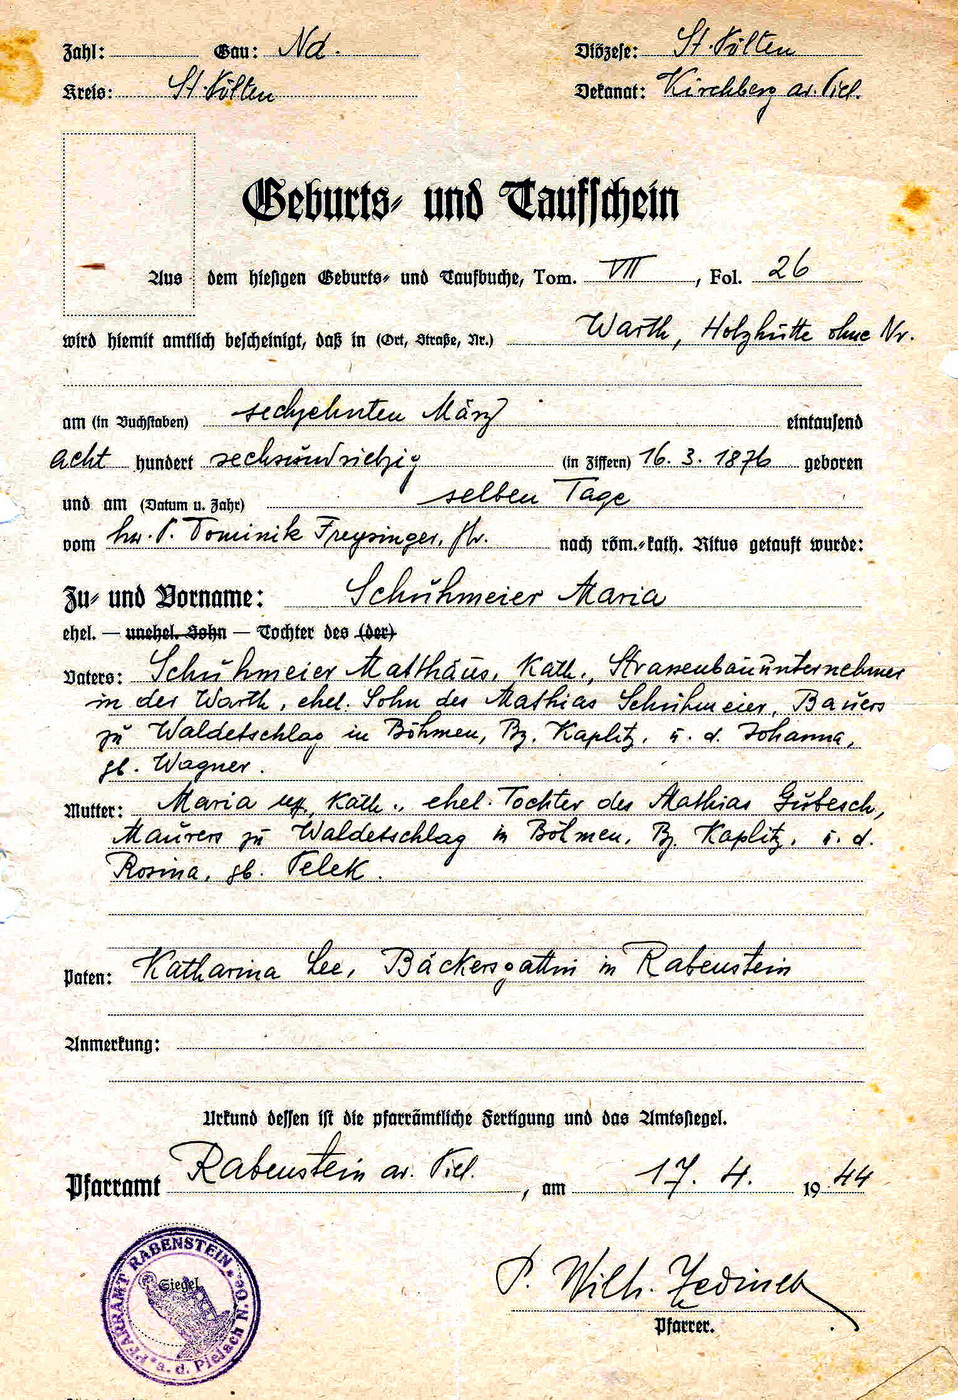 Zahl: Gau: Nd. Diözese: St. Pölten
Kreis: St. Pölten Dekanat: Kirchberg a. Piel.
Geburts- und Taufschein
Aus dem hiesigen Geburts- und Taufbuche, Tom. VII, Fol. 26
wird hiemit amtlich bescheinigt, daß in (Ort, Straße, Nr.) Warth, Holzhütte ohne Nr.
am (in Buchstaben) sechzehnten März eintausend
acht hundert sechsundsiebzig (in Ziffern) 16. 3. 1876 geboren
und am (Datum u. Jahr) selben Tage
vom hw. P. Dominik Freysinger, Pfr. nach röm.-kath. Ritus getauft wurde:
Zu- und Vorname: Schuhmeier Maria
ehel. — unehel. Sohn — Tochter des (der)
Vaters: Schuhmeier Matthäus, kath., Strassenbauunternehmer
in der Warth, ehel. Sohn des Mathias Schuhmeier, Bauers
zu Waldetschlag in Böhmen, Bz. Kaplitz, u. d. Johanna,
gb. Wagner.
Mutter: Maria kath., ehel. Tochter des Mathias Gubesch,
Maurers zu Waldetschlag in Böhmen, Bz. Kaplitz, u. d.
Rosina, gb. Pelek.
Paten: Katharina Lee, Bäckersgattin in Rabenstein
Anmerkung:
Urkund dessen ist die pfarrämtliche Fertigung und das Amtssiegel.
Pfarramt Rabenstein a. Piel., am 17. 4. 1944
PFARRAMT RABENSTEIN a. d. Pielach N.Ö.
Siegel
P. Wilh. Zedinek
Pfarrer.